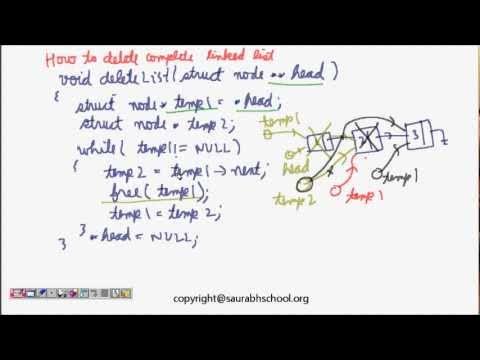 How to delete complete linked list
void deleteList(struct node ** head)
{
struct node * temp1 = * head;
struct node * temp2;
while( temp1 != NULL)
{
temp2 = temp1 → next;
free(temp1);
temp1 = temp2;
}
* head = NULL;
}
temp1
head
temp2
1
2
3
temp1
temp1
copyright@saurabhschool.org